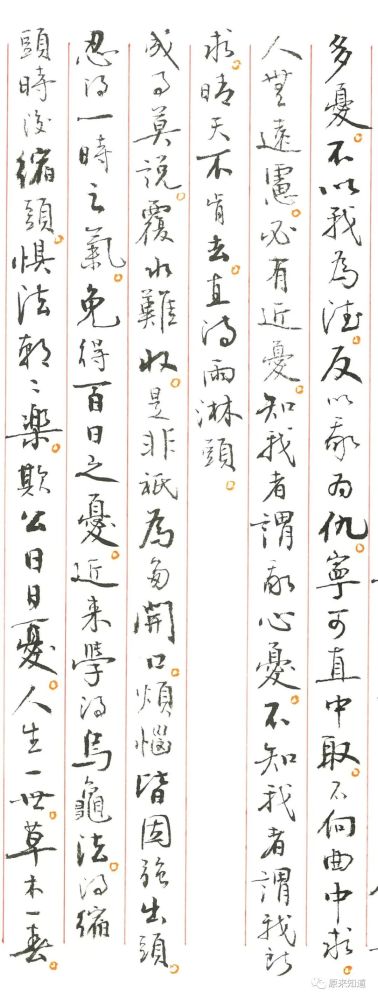 多憂。不以我為德。反以我為仇。寧可直中取。不向曲中求。
人無遠慮。必有近憂。知我者謂我心憂。不知我者謂我何
求。晴天不肯去。直待雨淋頭。
成事莫說。覆水難收。是非祇為多開口。煩惱皆因強出頭。
忍得一時之氣。免得百日之憂。近来學得烏龜法。得縮
頭時後縮頭。懼法朝〻樂。欺公日日憂。人生一世。草木一春。
原来知道